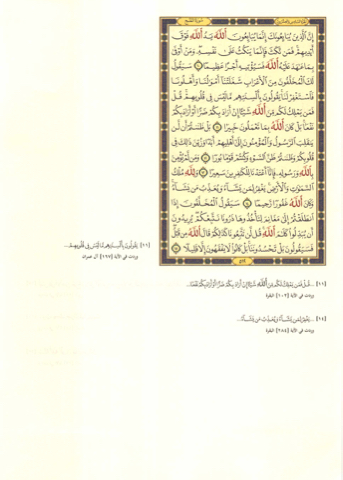 سورة الفتح
إِنَّ ٱلَّذِينَ يُبَايِعُونَكَ إِنَّمَا يُبَايِعُونَ ٱللَّهَ يَدُ ٱللَّهِ فَوْقَ
أَيْدِيهِمْ فَمَن نَّكَثَ فَإِنَّمَا يَنكُثُ عَلَىٰ نَفْسِهِۦ وَمَنْ أَوْفَىٰ
بِمَا عَٰهَدَ عَلَيْهُ ٱللَّهَ فَسَيُؤْتِيهِ أَجْرًا عَظِيمًا ١٠ سَيَقُولُ
لَكَ ٱلْمُخَلَّفُونَ مِنَ ٱلْأَعْرَابِ شَغَلَتْنَآ أَمْوَٰلُنَا وَأَهْلُونَا
فَٱسْتَغْفِرْ لَنَا يَقُولُونَ بِأَلْسِنَتِهِم مَّا لَيْسَ فِى قُلُوبِهِمْ قُلْ
فَمَن يَمْلِكُ لَكُم مِّنَ ٱللَّهِ شَيْـًٔا إِنْ أَرَادَ بِكُمْ ضَرًّا أَوْ أَرَادَ بِكُمْ
نَفْعًۢا بَلْ كَانَ ٱللَّهُ بِمَا تَعْمَلُونَ خَبِيرًۢا ١١ بَلْ ظَنَنتُمْ أَن لَّن
يَنقَلِبَ ٱلرَّسُولُ وَٱلْمُؤْمِنُونَ إِلَىٰٓ أَهْلِيهِمْ أَبَدًا وَزُيِّنَ ذَٰلِكَ فِى
قُلُوبِكُمْ وَظَنَنتُمْ ظَنَّ ٱلسَّوْءِ وَكُنتُمْ قَوْمًۢا بُورًا ١٢ وَمَن لَّمْ يُؤْمِنۢ
بِٱللَّهِ وَرَسُولِهِۦ فَإِنَّآ أَعْتَدْنَا لِلْكَٰفِرِينَ سَعِيرًا ١٣ وَلِلَّهِ مُلْكُ
ٱلسَّمَٰوَٰتِ وَٱلْأَرْضِ يَغْفِرُ لِمَن يَشَآءُ وَيُعَذِّبُ مَن يَشَآءُ
وَكَانَ ٱللَّهُ غَفُورًا رَّحِيمًا ١٤ سَيَقُولُ ٱلْمُخَلَّفُونَ إِذَا
ٱنطَلَقْتُمْ إِلَىٰ مَغَانِمَ لِتَأْخُذُوهَا ذَرُونَا نَتَّبِعْكُمْ يُرِيدُونَ
أَن يُبَدِّلُوا۟ كَلَٰمَ ٱللَّهِ قُل لَّن تَتَّبِعُونَا كَذَٰلِكُمْ قَالَ ٱللَّهُ مِن قَبْلُ
فَسَيَقُولُونَ بَلْ تَحْسُدُونَنَا بَلْ كَانُوا۟ لَا يَفْقَهُونَ إِلَّا قَلِيلًا ١٥
[١١] يَقُولُونَ بِأَلْسِنَتِهِم مَّا لَيْسَ فِى قُلُوبِهِمْ...
وردت في الآية [١٦٧] آل عمران
[١١] ...قُلْ فَمَن يَمْلِكُ لَكُم مِّنَ ٱللَّهِ شَيْـًٔا إِنْ أَرَادَ بِكُمْ ضَرًّا أَوْ أَرَادَ بِكُمْ نَفْعًۢا...
وردت في الآية [١٠٢] البقرة
[١٤] ...يَغْفِرُ لِمَن يَشَآءُ وَيُعَذِّبُ مَن يَشَآءُ...
وردت في الآية [٢٨٤] البقرة